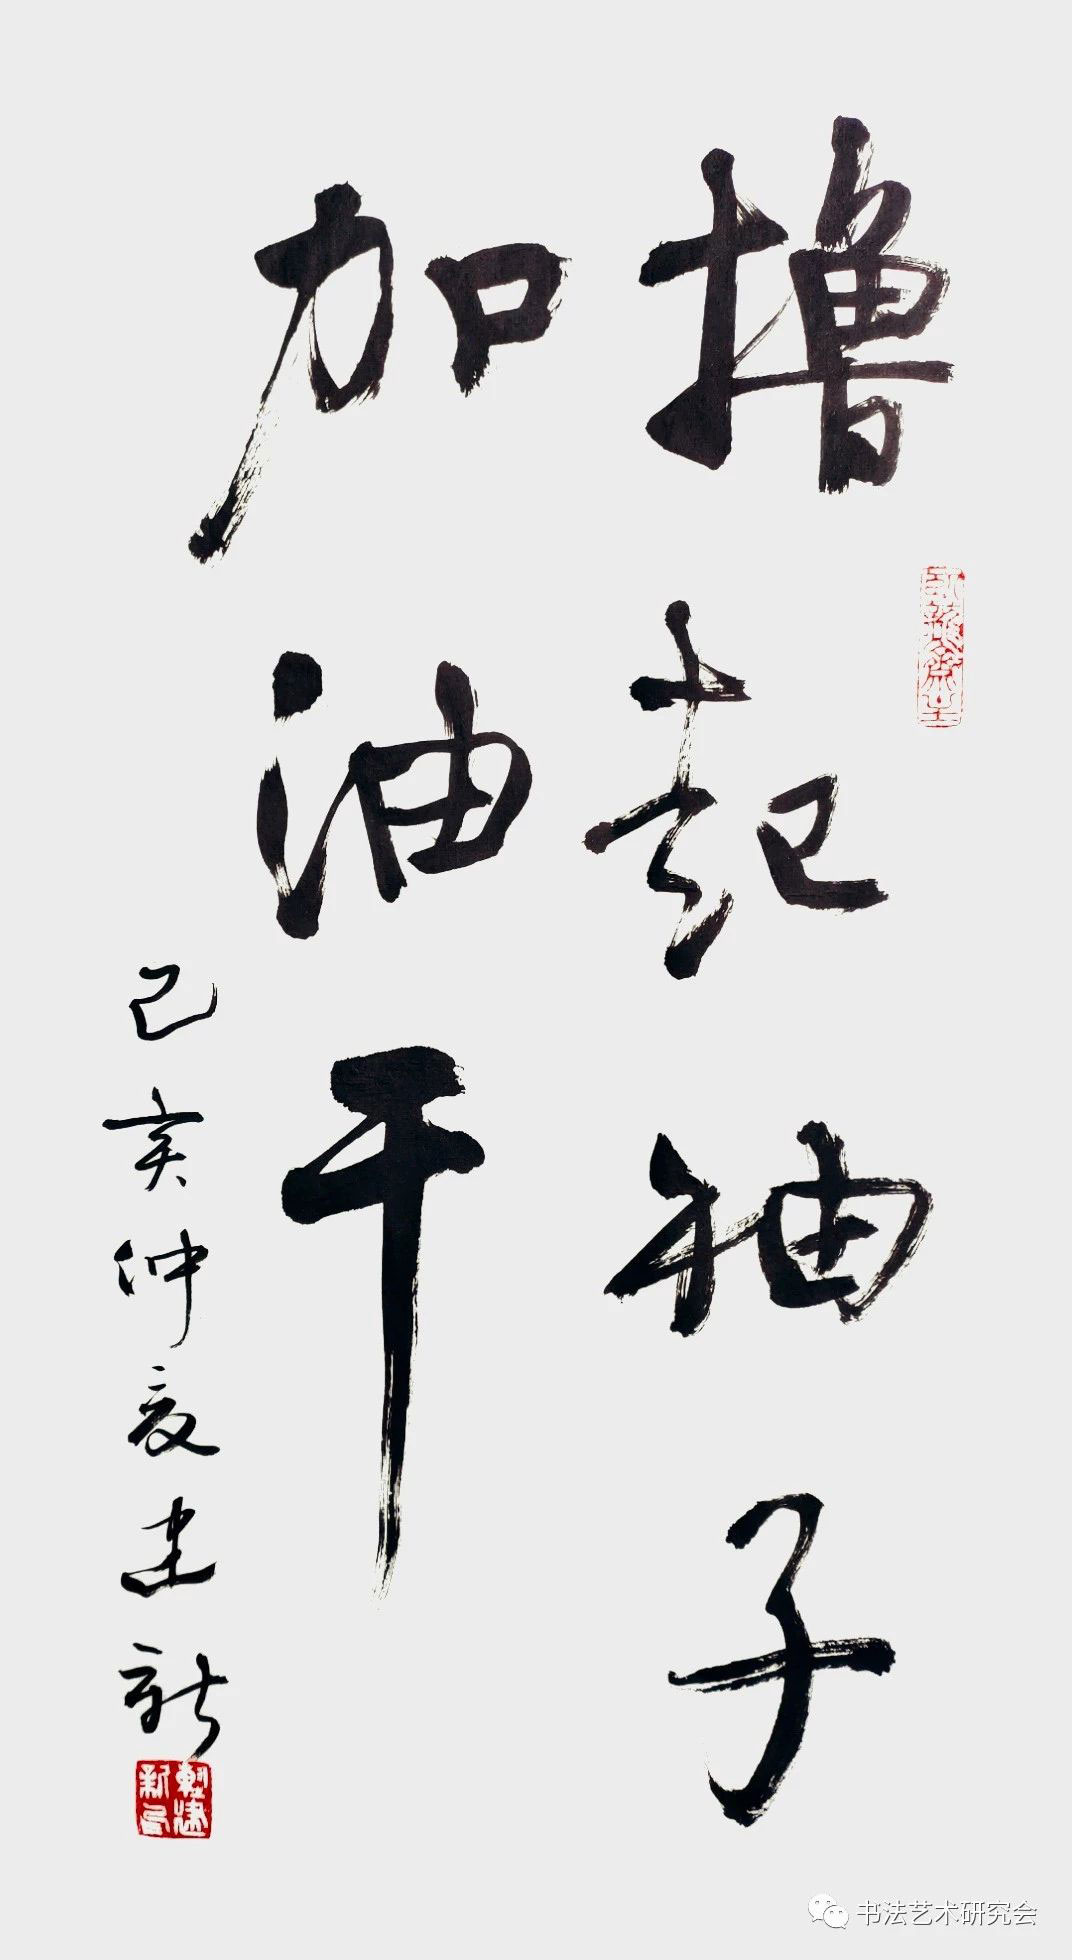 撸起袖子
加油干
己亥仲夏建新
书法艺术研究会